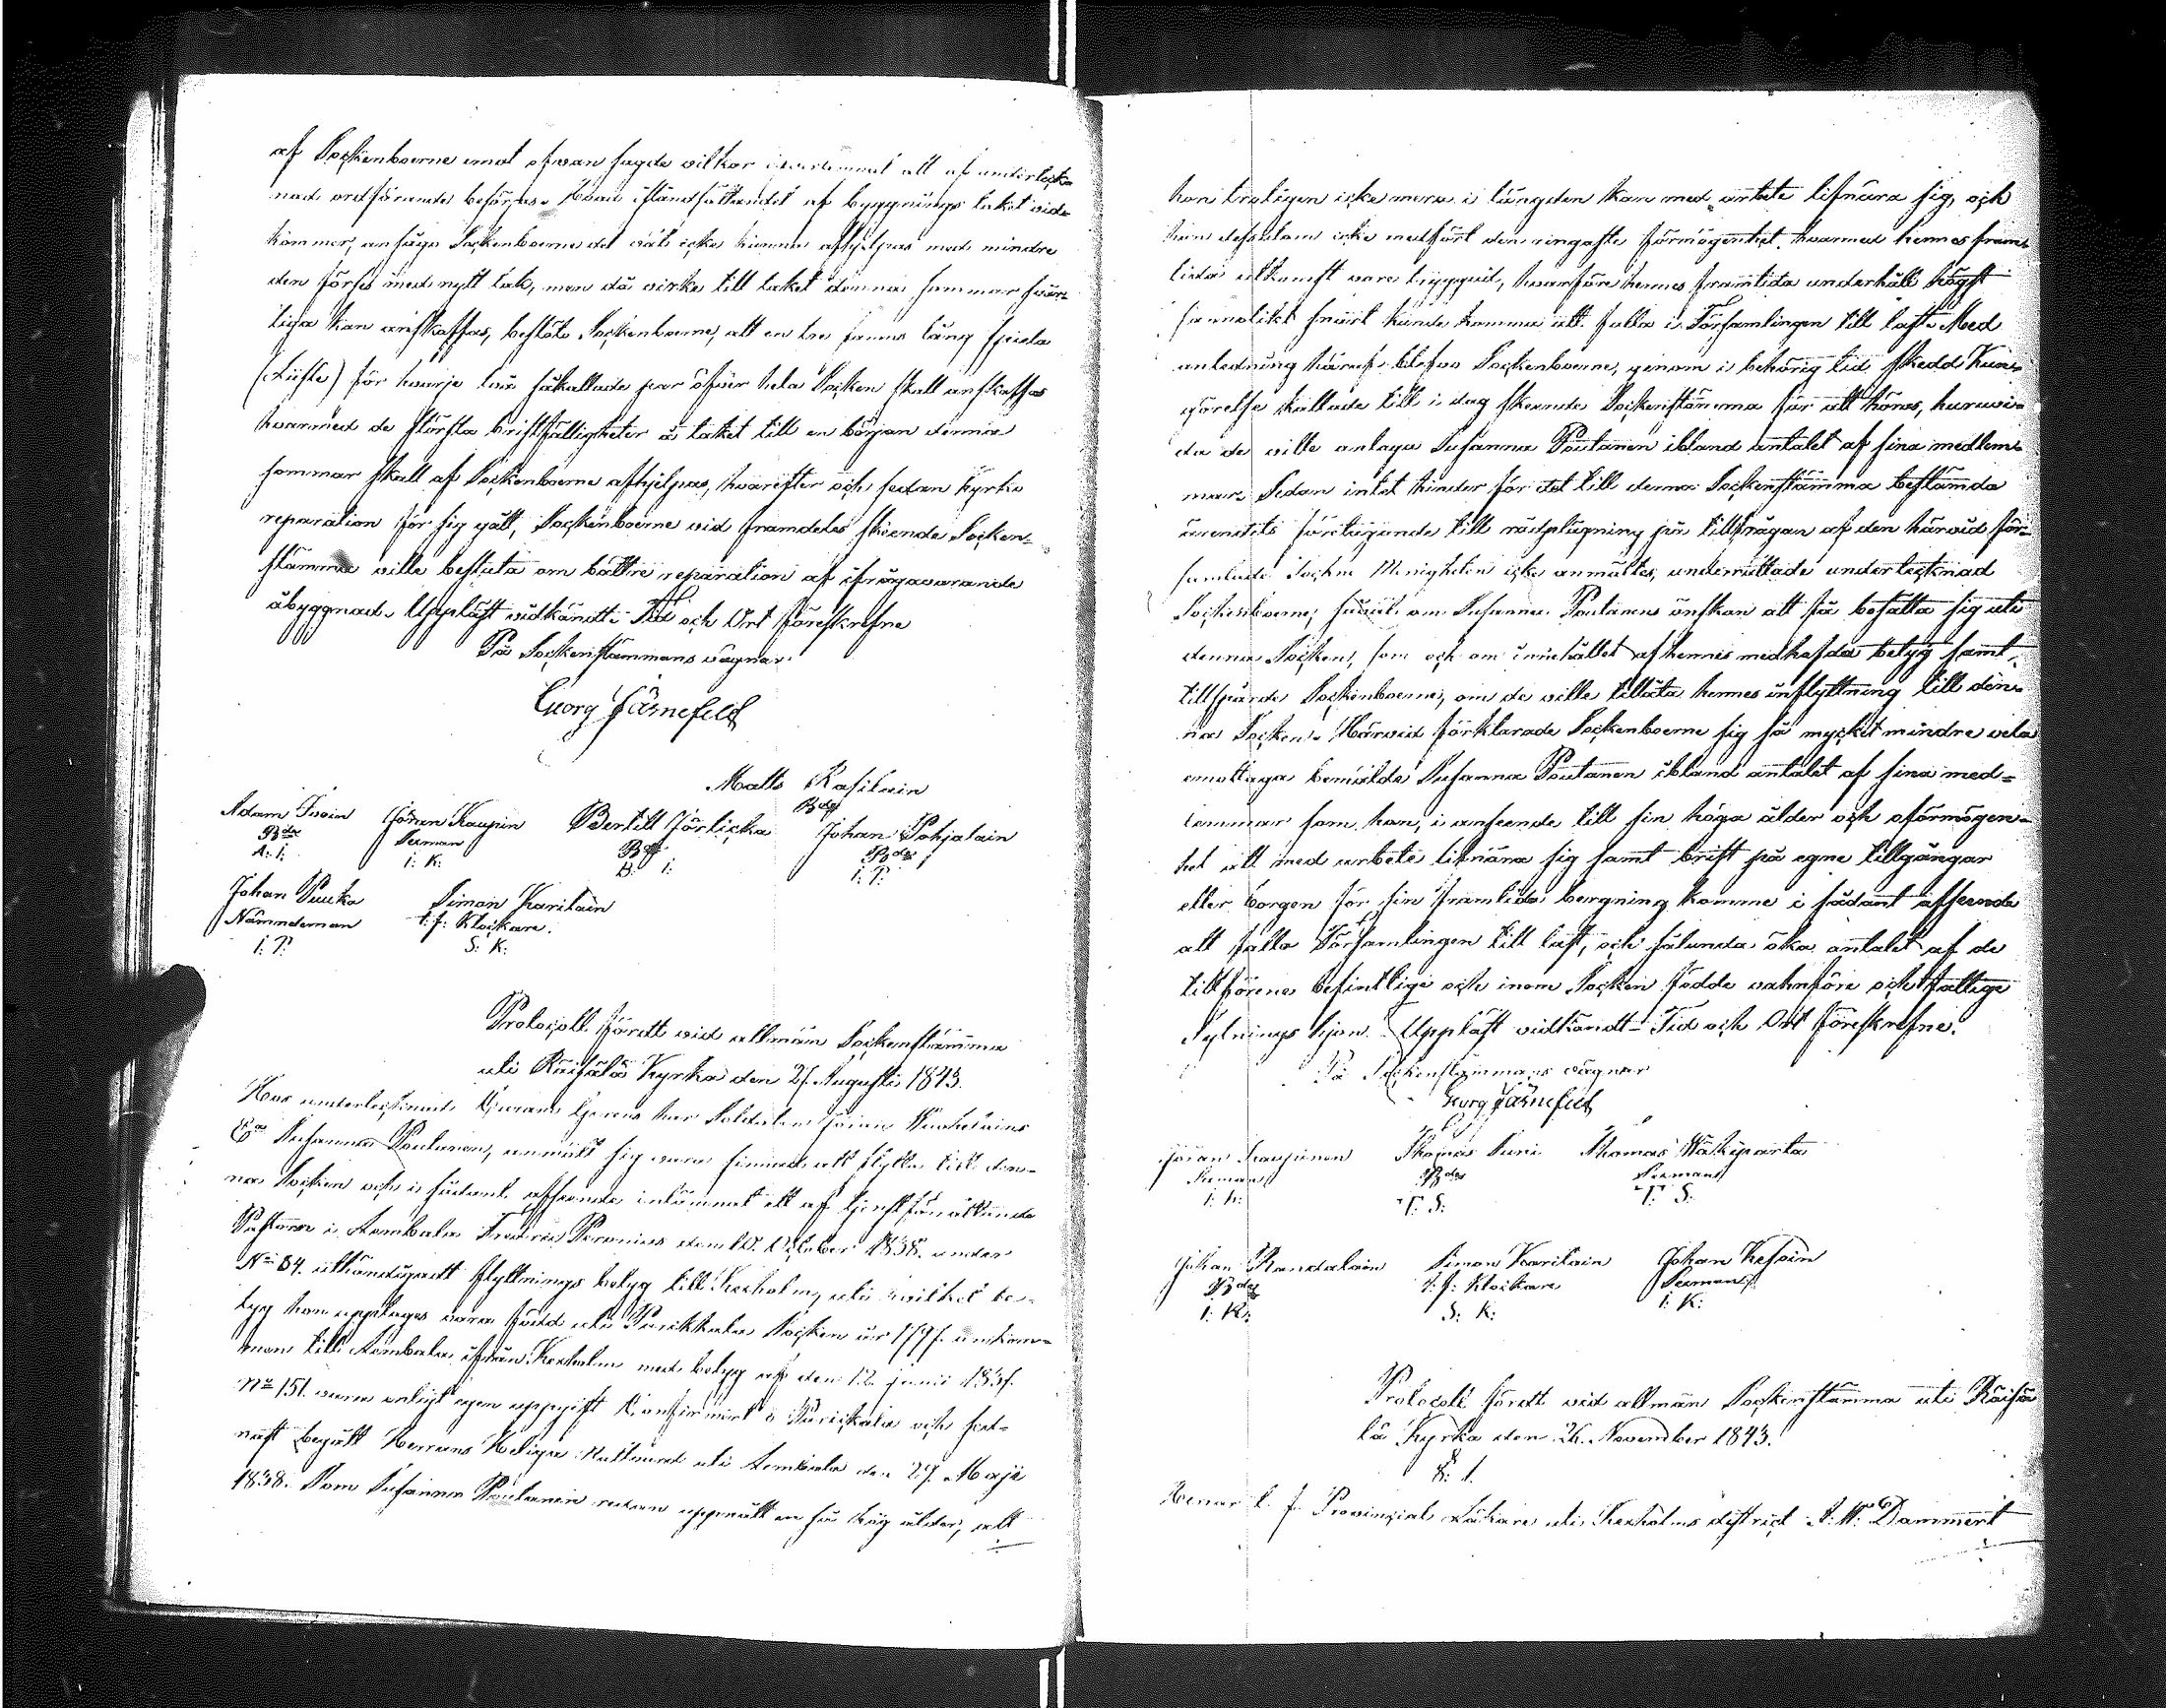 af Sockenboerne emot ofvan sagde vilkor att af underteck-
nad ordförande besörjas. Hvad iståndsättandet af byggnings taket vid-
kommer, ansågo Sockenboerne det väl icke kunna afhjelpas med mindre
den förses med nytt tak, men då virke till taket denna sommar svår-
liga kan anskaffas, beslöto Sockenboerne, att en tre famns lång
för hvarje två såkallade par öfver hela Socken skall anskaffas
hvarmed de största bristfälligheter å taket till en början denna
sommar skall af Sockenboerne afhjelpas, hvarefter och sedan Kyrko
reparation för sig gått, Sockenboerne vid framdeles skeende Socken-
stämma ville besluta om bättre reparation af ifrågavarande
åbyggnad. Uppläst vidkändt. Tid och Ort föreskrefne
På Sockenstämmans vägnar.
Georg Järnefelt
Matts Rasilain
Bdes
Adam Göran Kaupin Bertill Johan Pohjalain
Bde Sexman Bde Bdes
A. I. I: K: B: I: I: P:
Johan Puuka Simon Karilain
Nämndeman t. f: Klockare.
I: P: S: K:
Protocoll fördt vid allmän Sockenstämma
uti Räisälä Kyrka den 27. Augusti 1843.
Hos undertecknad har Soldaten
Susanna Poutanen, anmält sig vara sinnad att flytta till den-
na Socken och i sådant afseende inlämnat ett af tjenstförättande
Pastorn i den 10. October 1838. under
No 84. utfärdadt flyttnings betyg till Kexholm, uti hvilket be-
tyg hon upptages vara född uti Socken år 1797. ankom-
men till ifrån Kexholm med betyg af den 12 Junii 1837.
No 151. vara enligt egen uppgift Confirmerad i och sed-
nast begått Herrans Heliga Nattvard uti den 27. Maji
1838. Som Susanna Poutanen redan uppnått en så hög ålder, att
hon troligen icke mera i längden kan med arbete lifnära sig, och
hon dessutom icke medfört den ringaste förmögenhet, hvarmed hennes fram-
tida utkomst vore tryggad, hvarföre hennes framtida underhåll högst
sannolikt snart kunde komma att falla i Församlingen till last. Med
anledning häraf blefvo Sockenboerne, genom i behörig tid skedd Kun-
görelse kallade till i dag skeende Sockenstämma för att höras, huruvi-
da de ville antaga Susanna Poutanen ibland antalet af sina medlem-
mar. Sedan intet hinder för det till denna Sockenstämma bestämda
ärendets företagande till rådplägning på tillfrågan af den härvid för-
samlade Sockne Menigheten icke anmältes, underrättade undertecknad
Sockenboerne, såväl om Susanna Poutanens önskan att få besätta sig uti
denna Socken, som och om innehållet af hennes medhafda betyg samt
tillsporde Sockenboerne, om de ville tillåta hennes inflyttning till den-
na Socken. Härvid förklarade Sockenboerne sig så mycket mindre vela
emottaga bemälda Susanna Poutanen ibland antalet af sina med-
lemmar som hon, i anseende till sin höga ålder och oförmögen-
het att med arbete lifnära sig samt brist på egne tillgångar
eller borgen för sin framtida bergning komme i sådant afseende
att falla Församlingen till last, och sålunda öka antalet af de
tillförene befintlige och inom Socken födde vahnföre och fattige
hjon. Uppläst vidkändt. Tid och Ort föreskrefne.
På Sockenstämmans vägnar
Georg Järnefelt
Göran Kaupinen Thomas Suni Thomas Wäkiparta
Sexman Bdes Sexman
I: K: T: S: T: S:
Johan Randalain Simon Karilain Johan Kesoin
Bdes t. f: Klockare Sexman
I: R: S: K: I: K:
Protocoll fördt vid allmän Sockenstämma uti Räisä
lä Kyrka den 26. November 1843.
§: 1.
t. f. Provincial Läkare uti Kexholms district Dammert